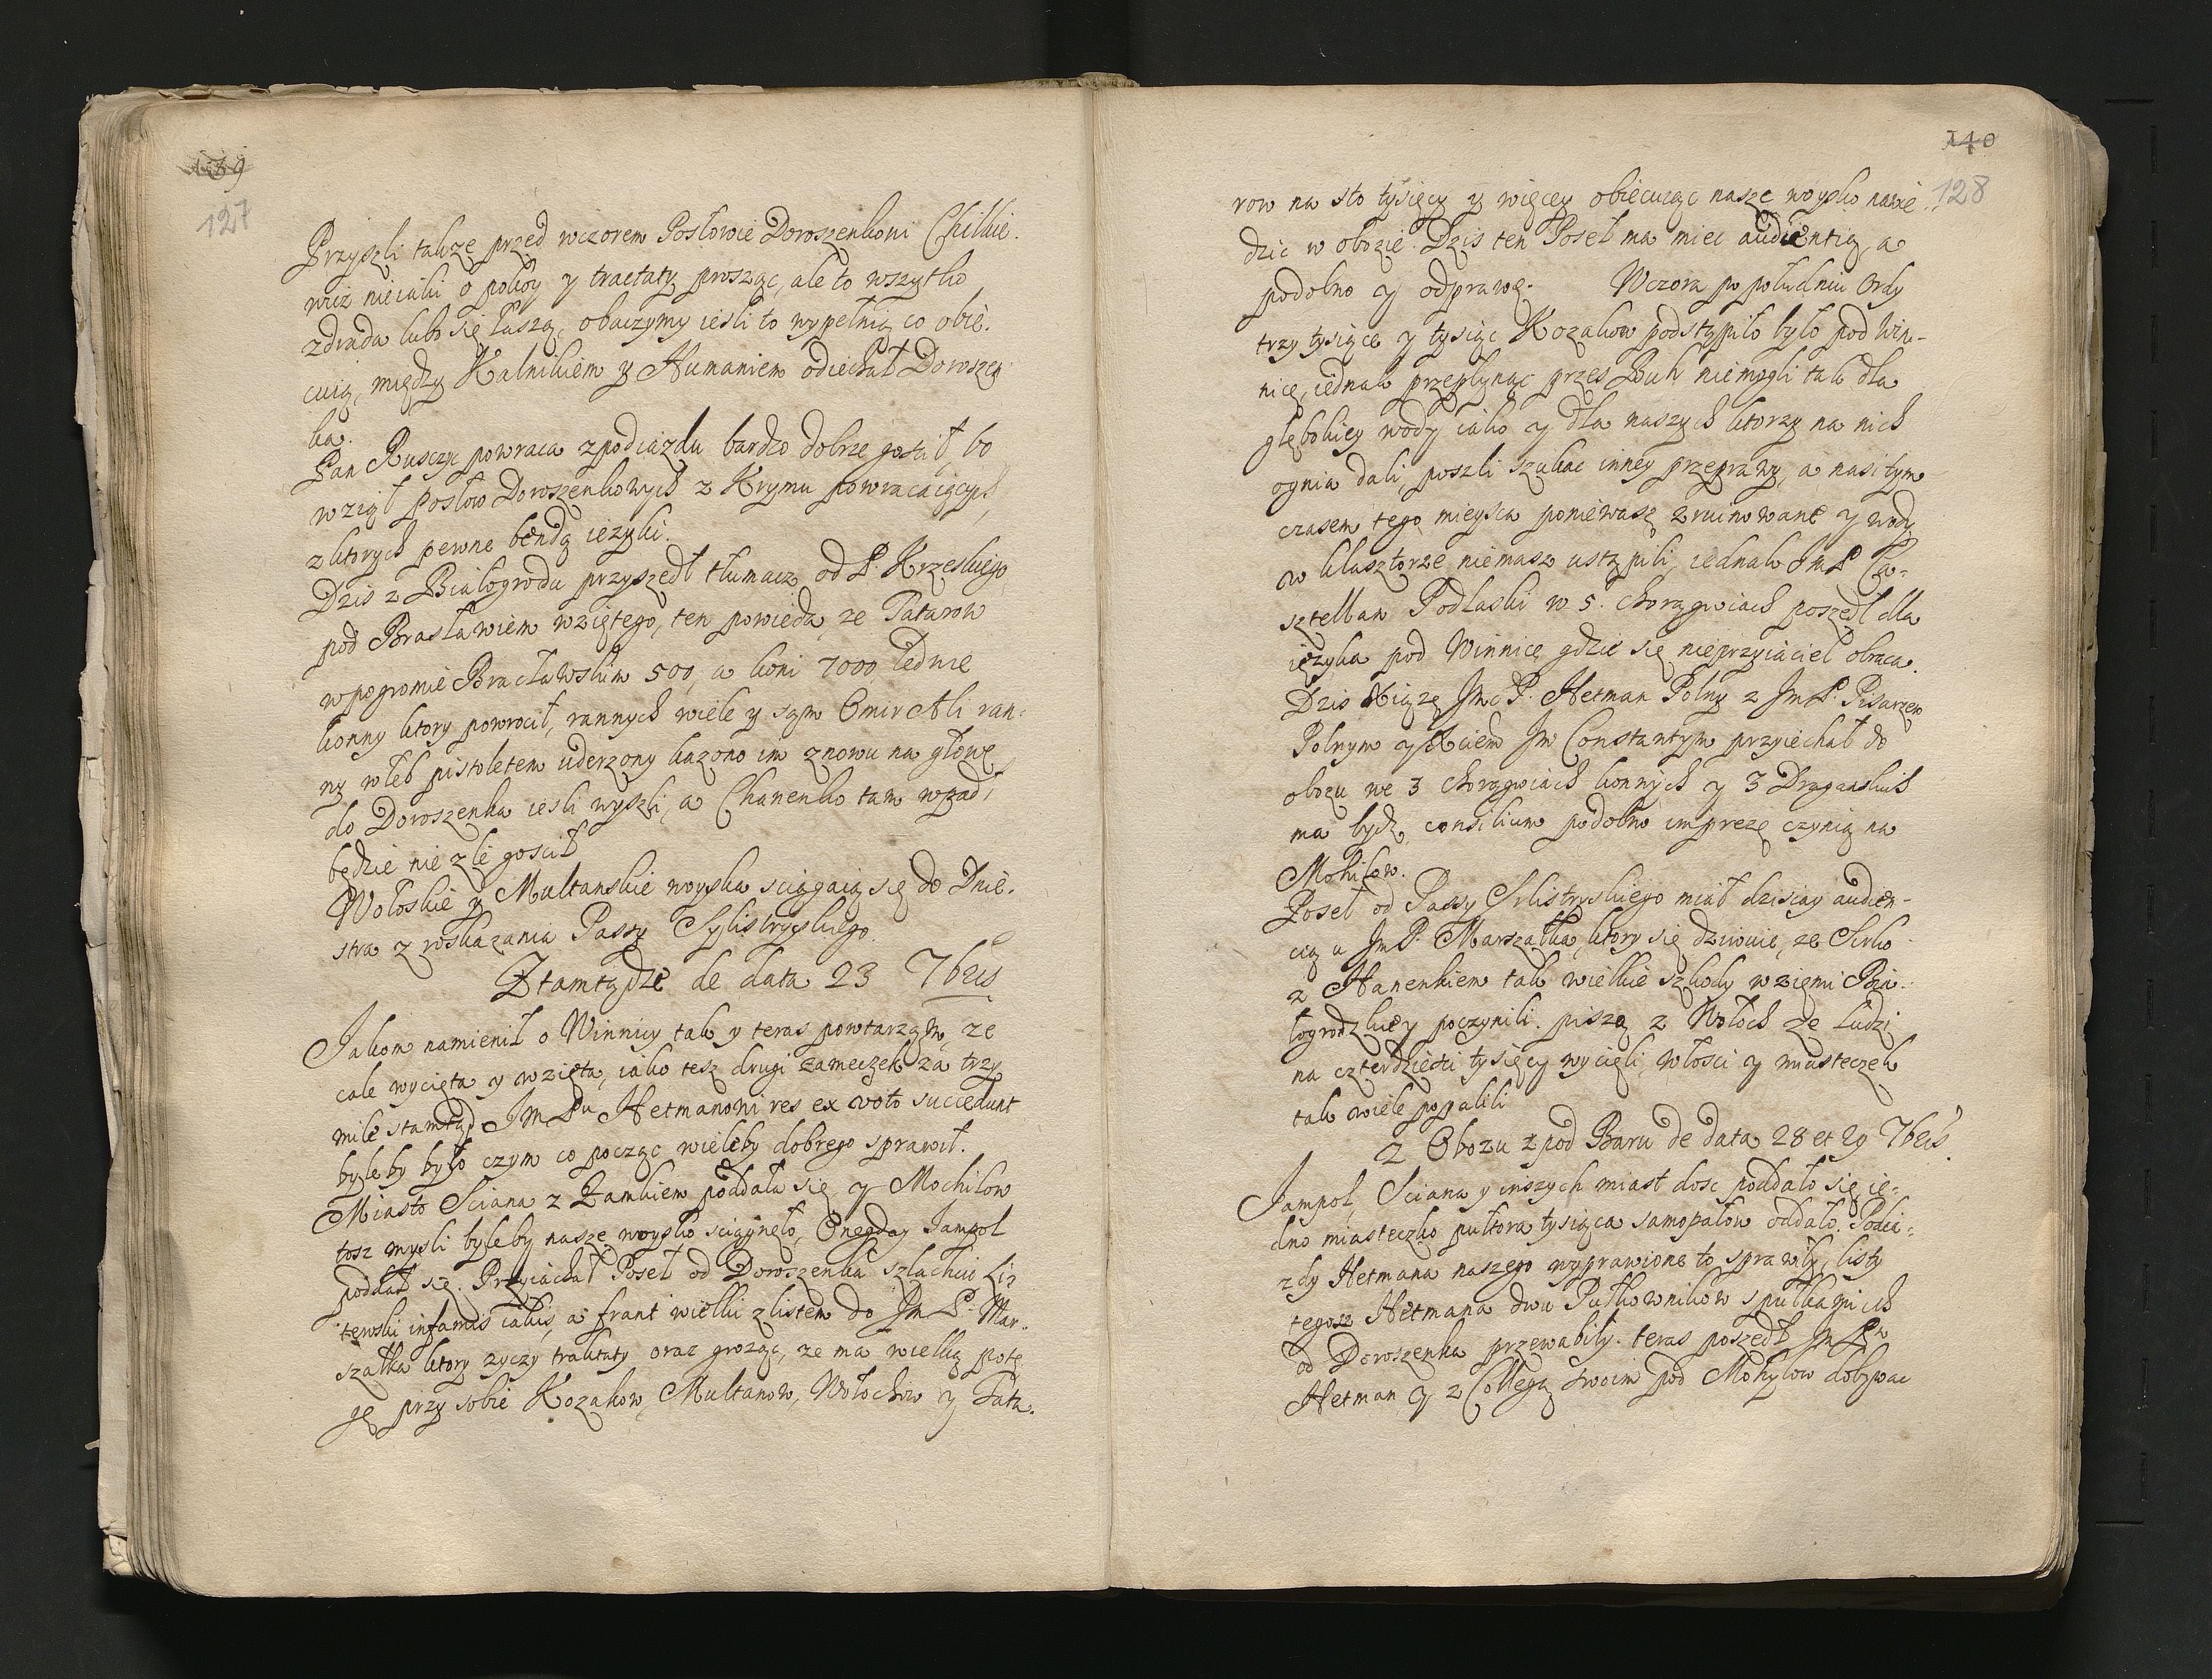 139
127
Przyszli takze przed wczorem Posłowie Doroszenkowi Chilkie.
wicz nieiaki o pokoy y tractaty prosząc, ale to wszytko
zdrada lubo się łaszą, obaczymy iesli to wypełnią co obie.
cuią, między Kalnikiem y Humaniem odiechał Doroszen
ka.
Pan Ruszczyc powraca z podiazdu bardzo dobrze goscił bo
wziął posłow Doroszenkowych z Krymu powracaiących
z ktorych pewne bendą iezyki.
Dzis z Białogrodu przyszedł tłumacz od P. Krzeskiego
pod Brasławiem wziętego, ten powieda, ze Tatarow
w pogromie Bracławskim 500, a koni 7000 ledwie
konny ktory powrocił, rannych wiele y sąm Omir Ali ran:
ny w łeb pistoletem uderzony kazono im znowu na głowę
do Doroszenka iesli wyszli, a Chanenko tam wpadł
będzie nie zle goscił
Wołoskie y Multanskie woyska sciągaią się do Dnie.
stra z roskazania Passy Sylistryskiego.
Ztamtądze de data 23 7bris
Jakom namienił o Winnicy tak y teras powtarząm, ze
cale wycięta y wzięta, iako tesz drugi zameczek za trzy
mile stamtąd Jm Pu Hetmanowi res ex voto succedunt
byleby było czym co począc wieleby dobrego sprawił.
Miasto Sciana z Zamkiem poddała się y Mochilow
tosz mysli byleby nasze woysko sciągneło, Onegday Jampol
poddał się. Przyiachał Poseł od Doroszenka szlachcic Li:
tewski infamis iakis, a frant wielki z listem do Jm P. Mar.
szałka ktory zyczy traktaty oraz groząc, ze ma wielką potę
gę przy sobie Kozakow, Multanow, Wołochow y Tata.
140
128
row na sto tysięcy y więcey obiecuiąc nasze woysko nawie
dzic w obozie. Dzis ten Poseł ma miec audientią, a
podobno y odprawę. Wczora po południu Ordy
trzy tysiące y tysiąc Kozakow podstąpiło było pod Win-
nicę, iednak przepłynąc przes Buh niemogli tak dla
głębokiey wody iako y dla naszych ktorzy na nich
ognia dali, poszli szukac inney przeprawy, a nasi tym
czasem tego mieysca poniewasz zruinowane y wody
w klasztorze niemasz ustąpili, iednak Jm P Ca-
sztellan Podlaski w 5. chorągwiach poszedł dla
ięzyka pod Winnicę gdzie się nieprzyiaciel obraca.
Dzis Xiązę Jmc P. Hetman Polny z Jm P. Pisarzem
Polnym y Xciem Jm Constantym przyiechał do
obozu we 3 chorągwiach konnych y 3 Draganskich
ma bydz consilium podobno imprezę czynią na
Mohilow.
Poseł od Passy Silistryskiego miał dzisiay audien-
cią u Jm P. Marszałka, ktory się dziwuie, ze Sirko
z Hanenkiem tak wielkie szkody w ziemi Bia.
łogrodzkiey poczynili. piszą z Wołoch ze ludzi
na czterdziesci tysięcy wycięli włosci y miasteczek
tak wiele popalili
Z Obozu z pod Baru de data 28 et 29 7bris.
Jampol, Sciana y inszych miast dosc poddało się ie:
dno miasteczko pułtora tysiąca samopałow oddało. Podia:
zdy Hetmana naszego wyprawione to sprawiły, listy
tegosz Hetmana dwu Pułkownikow s pułkami ich
od Doroszenka przewabiły. teras poszedł Jm Pan
Hetman y z Collegą swoim pod Mohylow dobywac